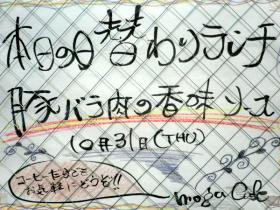 本日の日替わりランチ
豚バラ肉の香味ソース
10月31日(THU)
コーヒーだけでも
お気軽にどうぞ!!
moga Cafe